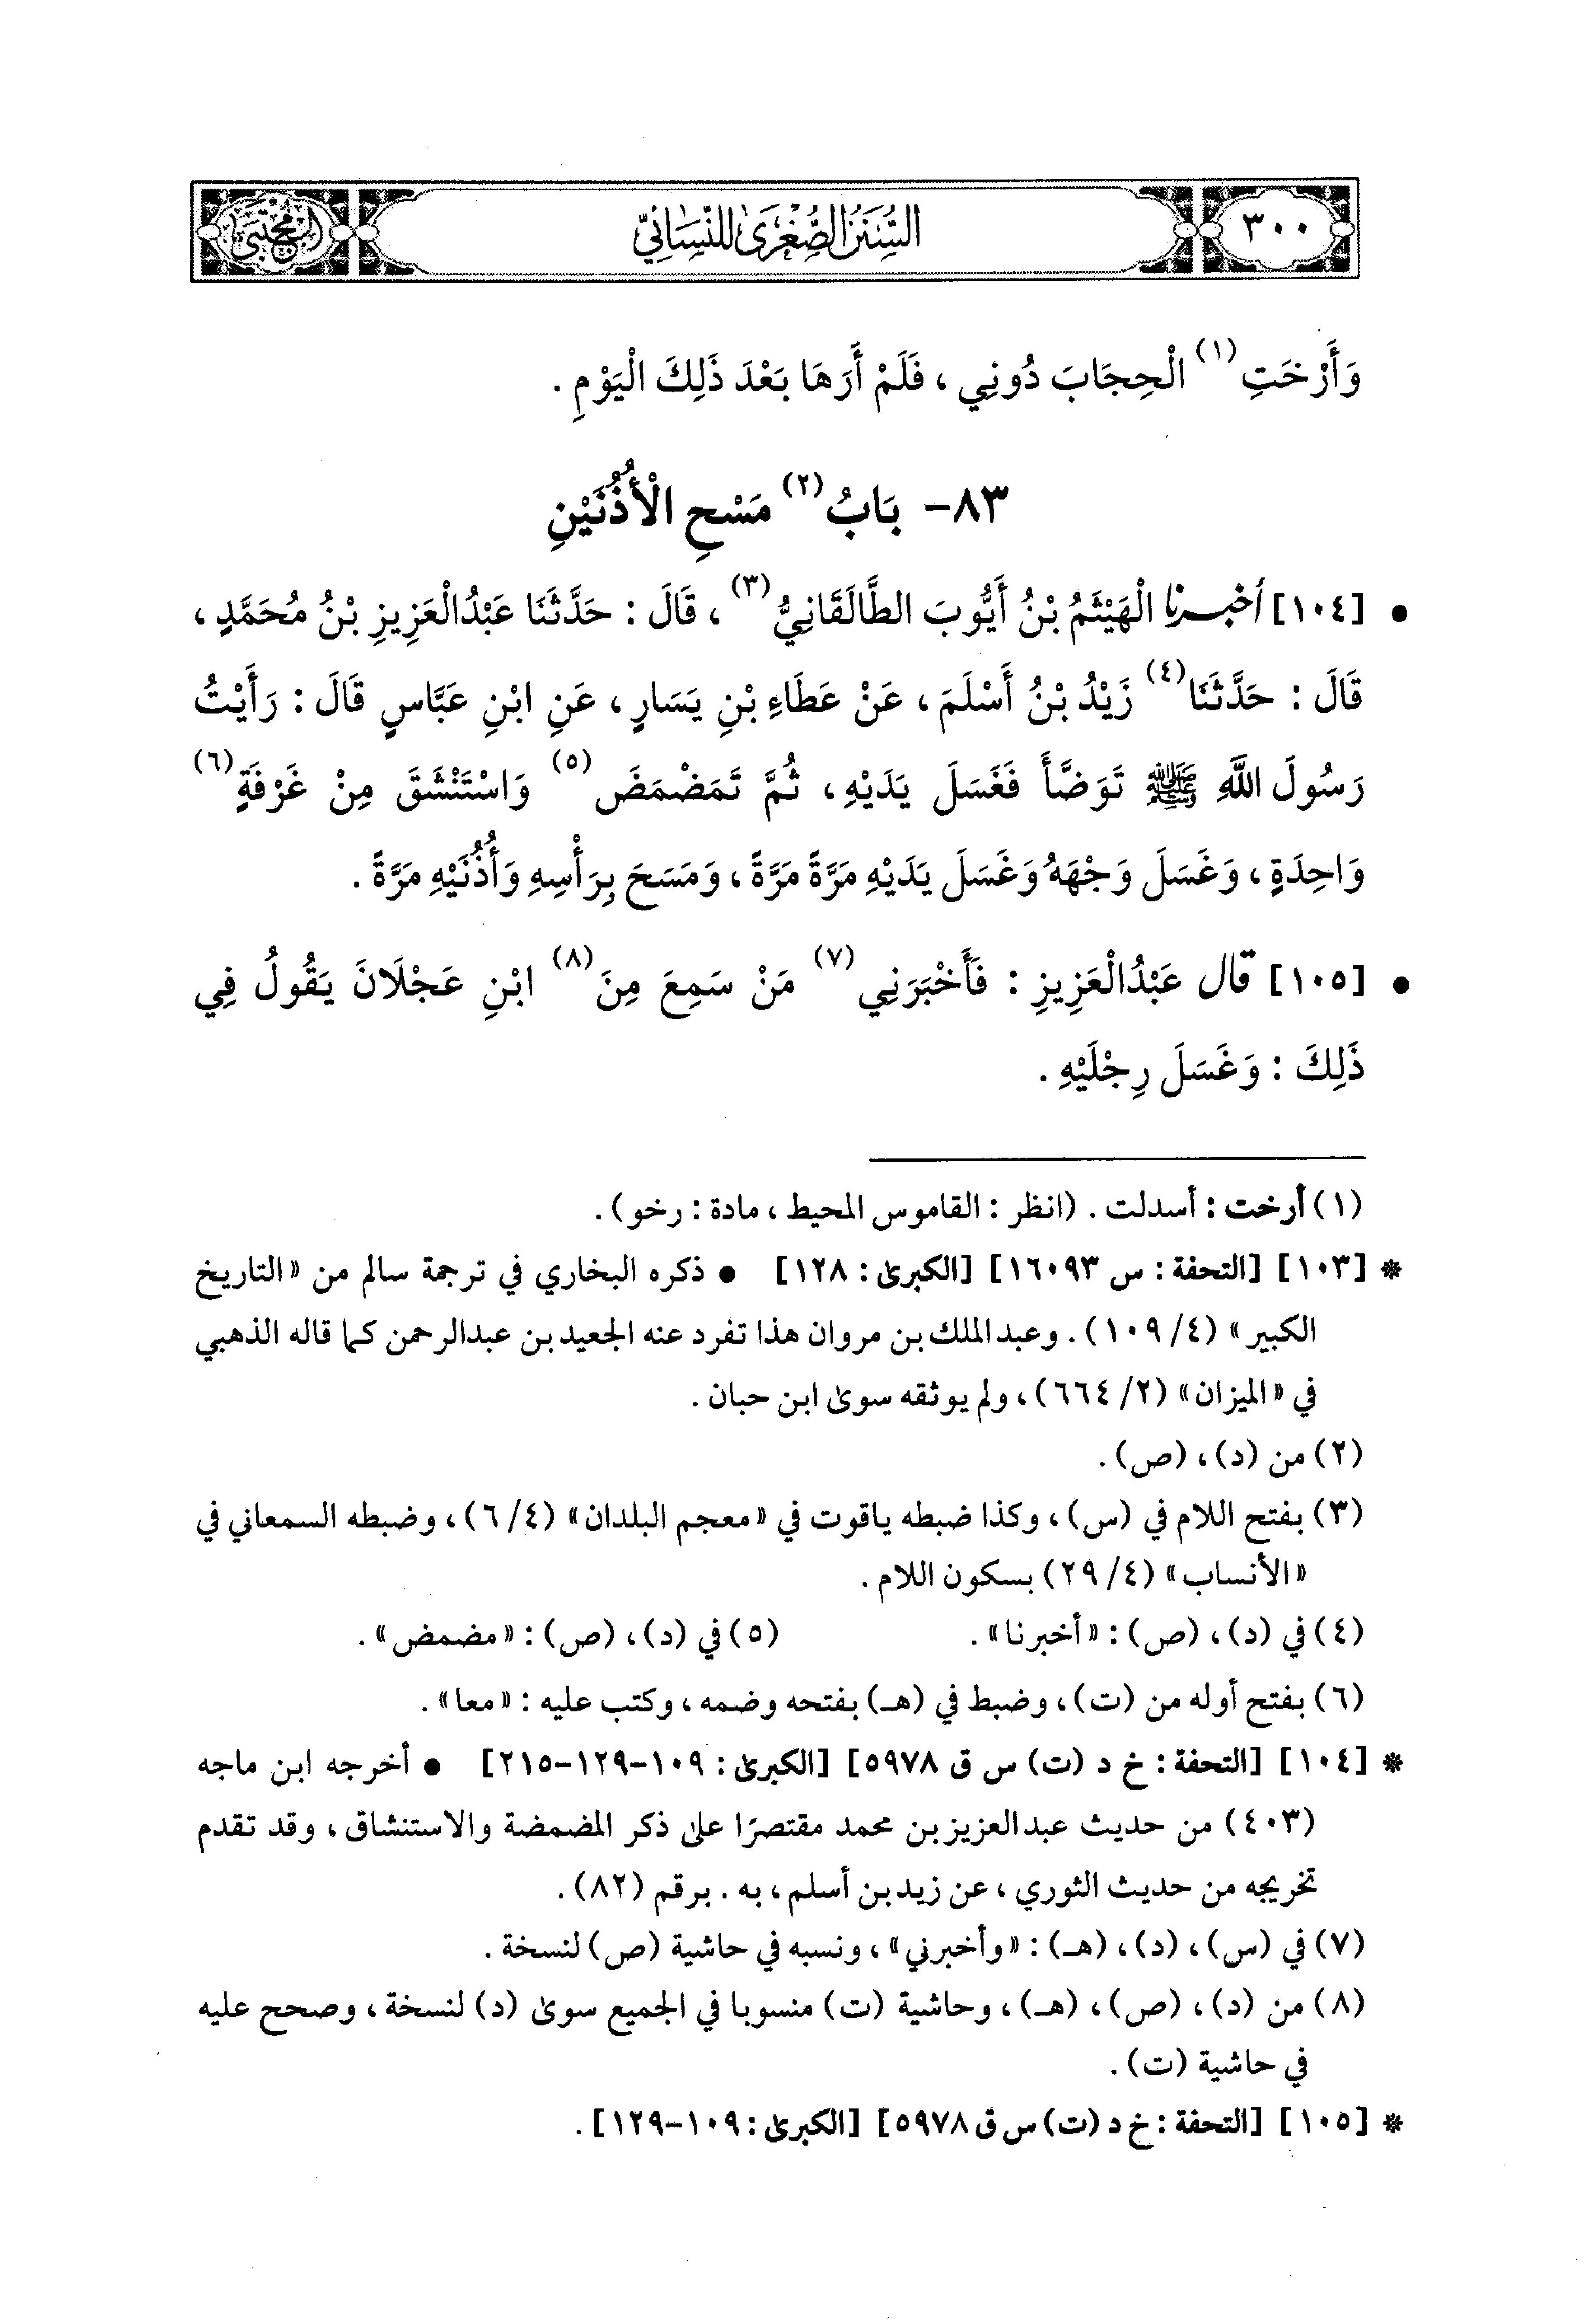 ٣٠٠ السُّنَنُ الصُّغْرَىٰ لِلنَّسَائِيِّ المجتبى
وَأَرْخَتِ(١) الْحِجَابَ دُونِي ، فَلَمْ أَرَهَا بَعْدَ ذَلِكَ الْيَوْمِ .
٨٣- بَابُ(٢) مَسْحِ الْأُذُنَيْنِ
• [١٠٤] أخبرنا الْهَيْثَمُ بْنُ أَيُّوبَ الطَّالَقَانِيُّ(٣) ، قَالَ : حَدَّثَنَا عَبْدُالْعَزِيزِ بْنُ مُحَمَّدٍ ،
قَالَ : حَدَّثَنَا(٤) زَيْدُ بْنُ أَسْلَمَ ، عَنْ عَطَاءِ بْنِ يَسَارٍ ، عَنِ ابْنِ عَبَّاسٍ قَالَ : رَأَيْتُ
رَسُولَ اللَّهِ ﷺ تَوَضَّأَ فَغَسَلَ يَدَيْهِ ، ثُمَّ تَمَضْمَضَ(٥) وَاسْتَنْشَقَ مِنْ غَرْفَةٍ(٦)
وَاحِدَةٍ ، وَغَسَلَ وَجْهَهُ وَغَسَلَ يَدَيْهِ مَرَّةً مَرَّةً ، وَمَسَحَ بِرَأْسِهِ وَأُذُنَيْهِ مَرَّةً .
• [١٠٥] قال عَبْدُالْعَزِيزِ : فَأَخْبَرَنِي(٧) مَنْ سَمِعَ مِنَ(٨) ابْنِ عَجْلَانَ يَقُولُ فِي
ذَلِكَ : وَغَسَلَ رِجْلَيْهِ .
(١) أرخت : أسدلت . (انظر : القاموس المحيط ، مادة : رخو) .
* [١٠٣] [التحفة : س ١٦٠٩٣] [الكبرىٰ : ١٢٨] • ذكره البخاري في ترجمة سالم من «التاريخ
الكبير» (٤/ ١٠٩) . وعبد الملك بن مروان هذا تفرد عنه الجعيد بن عبدالرحمن كما قاله الذهبي
في «الميزان» (٢/ ٦٦٤) ، ولم يوثقه سوىٰ ابن حبان .
(٢) من (د) ، (ص) .
(٣) بفتح اللام في (س) ، وكذا ضبطه ياقوت في «معجم البلدان» (٤/ ٦) ، وضبطه السمعاني في
«الأنساب» (٤/ ٢٩) بسكون اللام .
(٤) في (د) ، (ص) : «أخبرنا» . (٥) في (د) ، (ص) : «مضمض» .
(٦) بفتح أوله من (ت) ، وضبط في (هـ) بفتحه وضمه ، وكتب عليه : «معا» .
* [١٠٤] [التحفة : خ د (ت) س ق ٥٩٧٨] [الكبرىٰ : ١٠٩-١٢٩-٢١٥] • أخرجه ابن ماجه
(٤٠٣) من حديث عبدالعزيز بن محمد مقتصرًا علىٰ ذكر المضمضة والاستنشاق ، وقد تقدم
تخريجه من حديث الثوري ، عن زيد بن أسلم ، به . برقم (٨٢) .
(٧) في (س) ، (د) ، (هـ) : «وأخبرني» ، ونسبه في حاشية (ص) لنسخة .
(٨) من (د) ، (ص) ، (هـ) ، وحاشية (ت) منسوبا في الجميع سوىٰ (د) لنسخة ، وصحح عليه
في حاشية (ت) .
* [١٠٥] [التحفة : خ د (ت) س ق ٥٩٧٨] [الكبرىٰ : ١٠٩-١٢٩] .